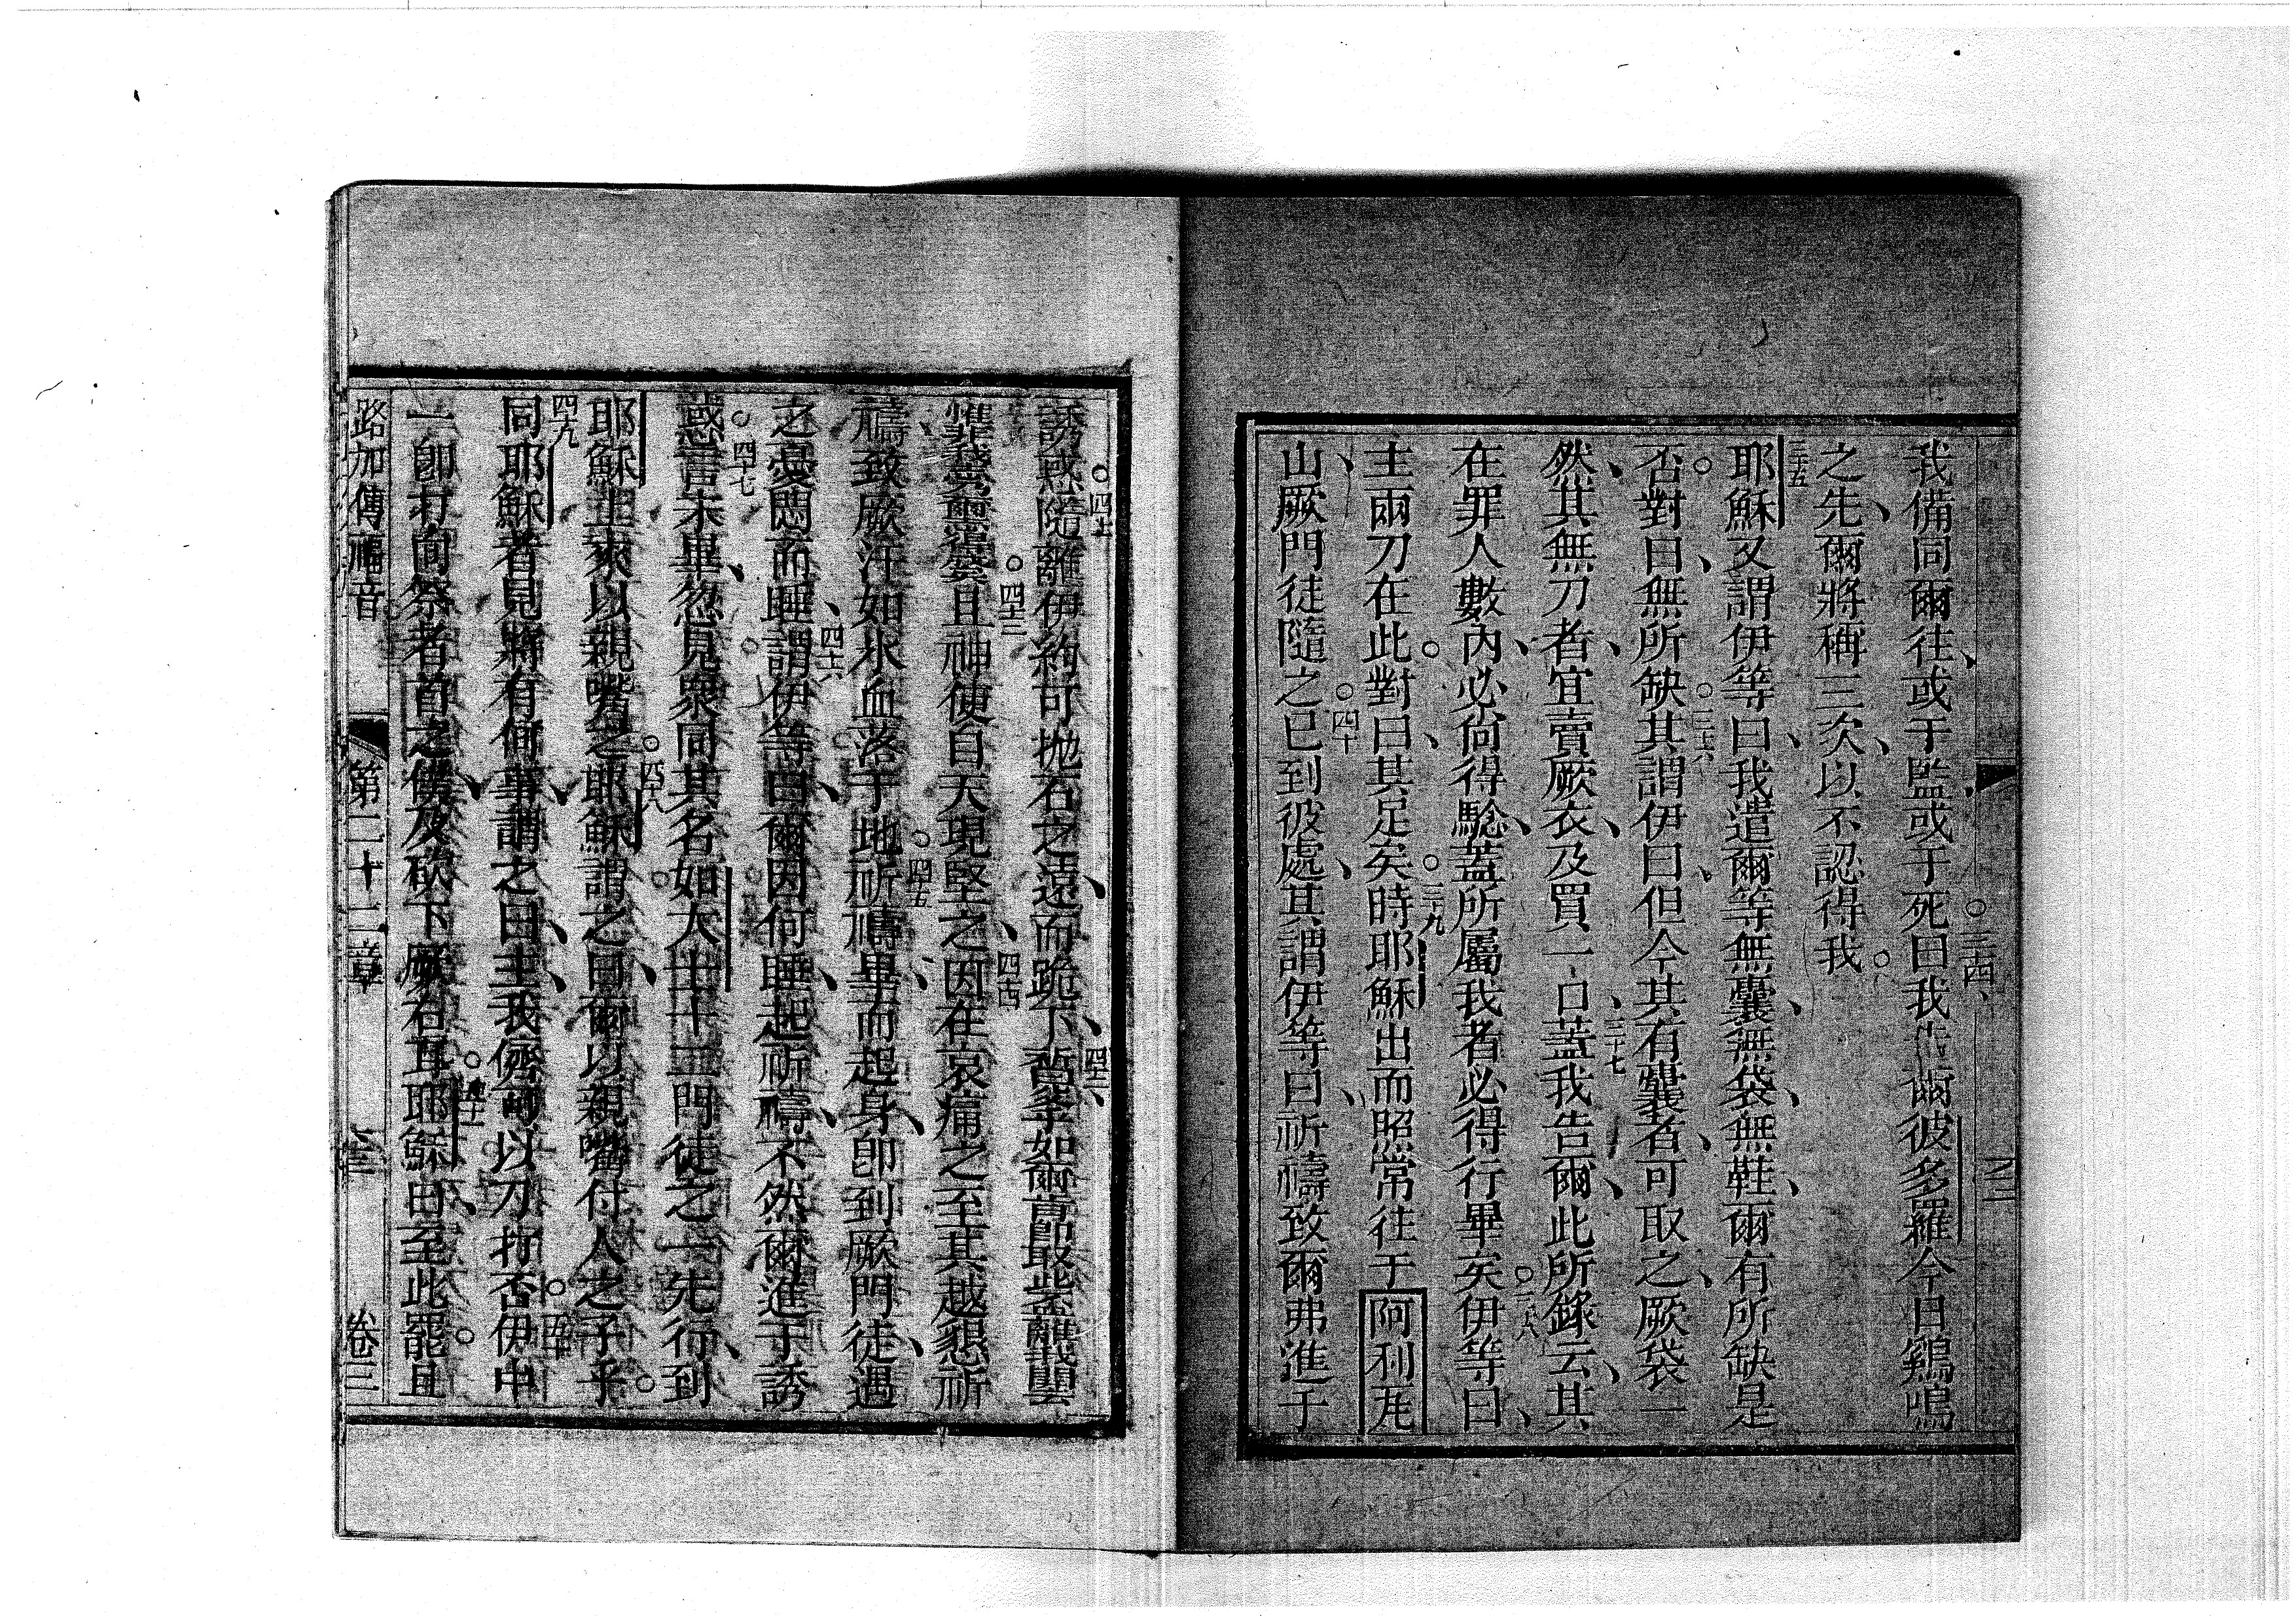 我備同爾往或于監或于死曰我告爾彼多羅今日鷄鳴
之先爾將稱三次以不認得我
耶穌又謂伊等曰我遣爾等無囊無袋無鞋爾有所缺是
否對曰無所缺其謂伊曰但今其有囊者可取之厥袋一
然其無刀者宜賣厥衣及買一口蓋我告爾此所錄云其
在罪人數內必尙得騐蓋所屬我者必得行畢矣伊等曰
主兩刀在此對曰其足矣時耶穌出而照常往于阿利瓦
山厥門徒隨之已到彼處其謂伊等曰祈禱致爾弗進于
誘惑隨離伊約可拋石之遠而跪下
且神使自天現堅之因在哀痛之至其越懇祈
禱致厥汗如水血落于地祈禱畢而起身卽到厥門徒遇
之憂悶而睡謂伊等曰爾因何睡起祈禱不然爾進于誘
惑言未畢忽見衆同其名如大士十二門徒之一先行到
耶穌上來以親嘴之耶穌謂之曰爾以親嘴付人之子乎
同耶穌者見將有何事謂之曰主我儕可以刀打否伊中
一卽打向祭者首之僕及砍下厥右耳耶穌曰至此罷且
路加傳福音 第二十二章 卷三